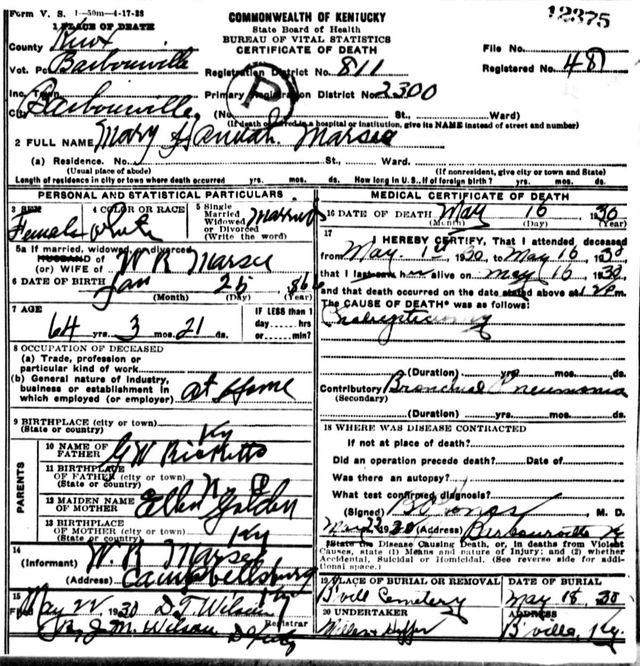 Form V. S. 1-50m-4-17-28
COMMONWEALTH OF KENTUCKY
State Board of Health
BUREAU OF VITAL STATISTICS
CERTIFICATE OF DEATH
12375
1 PLACE OF DEATH
County Knox
File No.
Vot. Pc Barbourville
Registration District No. 811
Registered No. 48
Inc. Town
Primary Registration District No. 2300
City Barbourville (No. St., Ward)
(If death occurred in a hospital or institution, give its NAME instead of street and number)
P
2 FULL NAME Mary Hannah Marsee
(a) Residence. No. St., Ward.
(Usual place of abode) (If nonresident, give city or town and State)
Length of residence in city or town where death occurred yrs. mos. ds. How long in U. S., if of foreign birth? yrs. mos. ds.
PERSONAL AND STATISTICAL PARTICULARS
3 SEX
Female
4 COLOR OR RACE
White
5 Single
Married
Widowed
or Divorced
(Write the word)
Married
5a If married, widowed, or divorced
HUSBAND of
(or) WIFE of W R Marsee
6 DATE OF BIRTH Jan 25 1866
(Month) (Day) (Year)
7 AGE
64 yrs. 3 mos. 21 ds.
IF LESS than 1
day hrs.
or min.?
8 OCCUPATION OF DECEASED
(a) Trade, profession or
particular kind of work
(b) General nature of industry,
business or establishment in
which employed (or employer) at Home
9 BIRTHPLACE (city or town)
(State or country) Ky
PARENTS
10 NAME OF
FATHER G W Ricketts
11 BIRTHPLACE
OF FATHER (city or town)
(State or country)
12 MAIDEN NAME
OF MOTHER Ellen Golden
13 BIRTHPLACE
OF MOTHER (city or town)
(State or country) Ky
14
(Informant) W R Marsee
(Address) Campbellsburg
Ky
15
Filed May 22 1930 D T Wilson
Registrar
By J M Wilson
MEDICAL CERTIFICATE OF DEATH
16 DATE OF DEATH May 16 1930
(Month) (Day) (Year)
17
I HEREBY CERTIFY, That I attended deceased
from May 1st 1930 to May 16 1930
that I last saw h alive on May 16 1930
and that death occurred on the date stated above at m.
The CAUSE OF DEATH* was as follows:
(Duration) yrs. mos. ds.
Contributory Bronchial Pneumonia
(Secondary)
(Duration) yrs. mos. ds.
18 WHERE WAS DISEASE CONTRACTED
If not at place of death?
Did an operation precede death? Date of
Was there an autopsy?
What test confirmed diagnosis?
(Signed) M. D.
May 22 1930 (Address) Barbourville Ky
*State the Disease Causing Death, or, in deaths from Violent
Causes, state (1) Means and nature of Injury; and (2) whether
Accidental, Suicidal or Homicidal. (See reverse side for addi-
tional space.)
19 PLACE OF BURIAL OR REMOVAL
B'vill Cemetery
DATE OF BURIAL
May 18 30
20 UNDERTAKER
ADDRESS
B'ville, Ky.